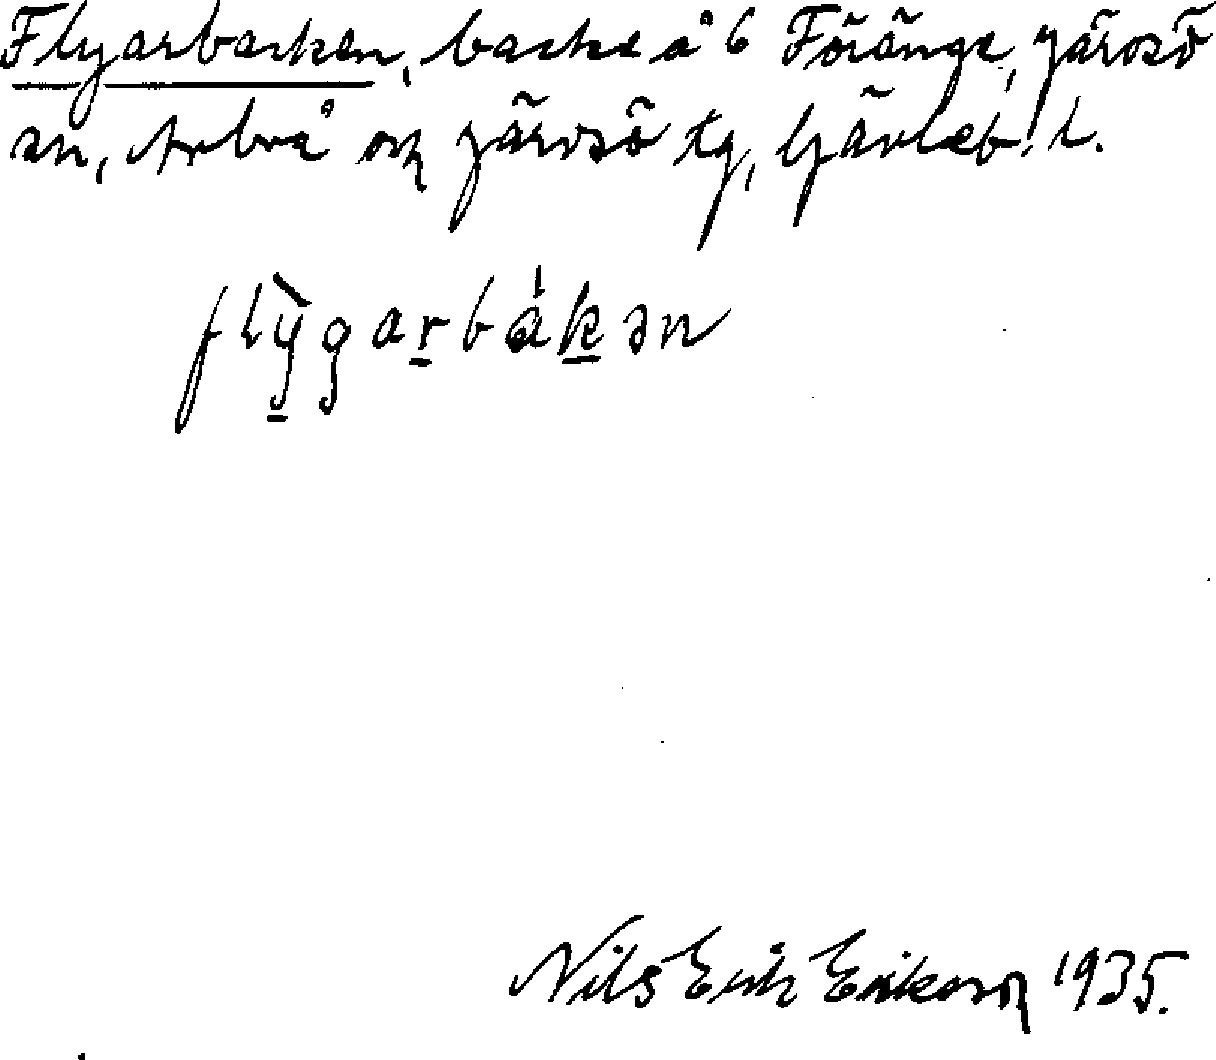 Flyarbacken, backe å 6 Föränge, Järvsö
sn, Arbrå och Järvsö tg, Gävleb. l.
flỳgarbákən
Nils Erik Erikson 1935.